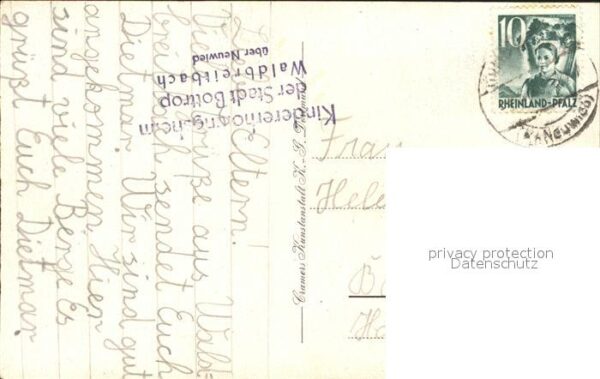 Liebe Eltern!
Viele Grüße aus Wald=
breitbach sendet Euch
Dietmar. Wir sind gut
angekommen. Hier
sind viele Berge. Es
grüßt Euch Dietmar
Kindererholungsheim
der Stadt Bottrop
Waldbreitbach
über Neuwied
Cramers Kunstanstalt K.-G.
10
RHEINLAND-PFALZ
(NEUWIED)
Frau
privacy protection
Datenschutz